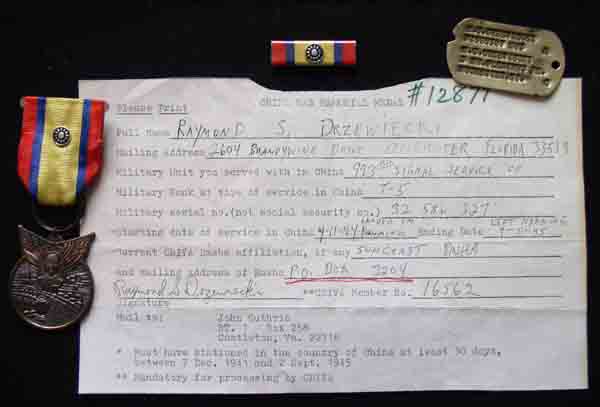 CHINA WAR MEMORIAL MEDAL #12877
Please Print
Full Name RAYMOND S. DRZEWIECKI
Mailing address 2604 BRANDYWINE DRIVE FLORIDA
Military Unit you served with in China 993RD SIGNAL SERVICE CO
Military Rank at time of service in China T-5
Military serial no.(not social security no.) 32 584 327
Starting date of service in China 4-11-44 Ending Date
Current CBIVA Basha affiliation, if any SUNCOAST BASHA
and mailing address of Basha P.O. BOX 2204
Raymond S Drzewiecki **CBIVA Member No. 16562
Signature
Mail to: John Guthrie
RT. 1 Box 258
Castleton, Va. 22716
* Must have stationed in the country of China at least 30 days,
between 7 Dec. 1941 and 2 Sept. 1945
** Mandatory for processing by CBIVA